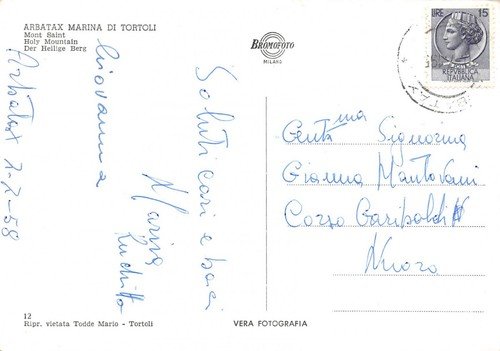 ARBATAX MARINA DI TORTOLI
Mont Saint
Holy Mountain
Der Heilige Berg
BROMOFOTO
MILANO
LIRE 15
REPVBBLICA
ITALIANA
Arbatax 2-2-58
Giovanna
Saluti cari e baci
Marisa
Gent.ma Signorina
Gianna Mantovani
Corso Garibaldi
Nuoro
12
Ripr. vietata Todde Mario - Tortoli
VERA FOTOGRAFIA